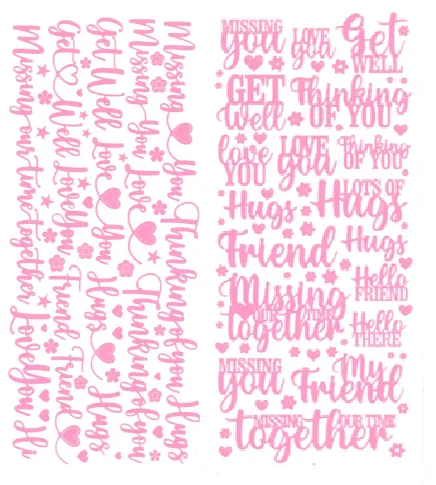 Missing You Thinking of you Hugs
Missing You Love Thinking of you
Get Well Love Hugs Hugs
Get Well Love You Friend Friend
Missing our time together Love You Hi
MISSING
you
LOVE
you
Get
WELL
GET
Well
Thinking
OF YOU
love
YOU
LOVE
you
Thinking
OF YOU
Hugs
LOTS OF
Hugs
Friend
Hugs
Missing
OUR TIME
together
Hello
FRIEND
Hello
THERE
MISSING
you
My
Friend
MISSING OUR TIME
together